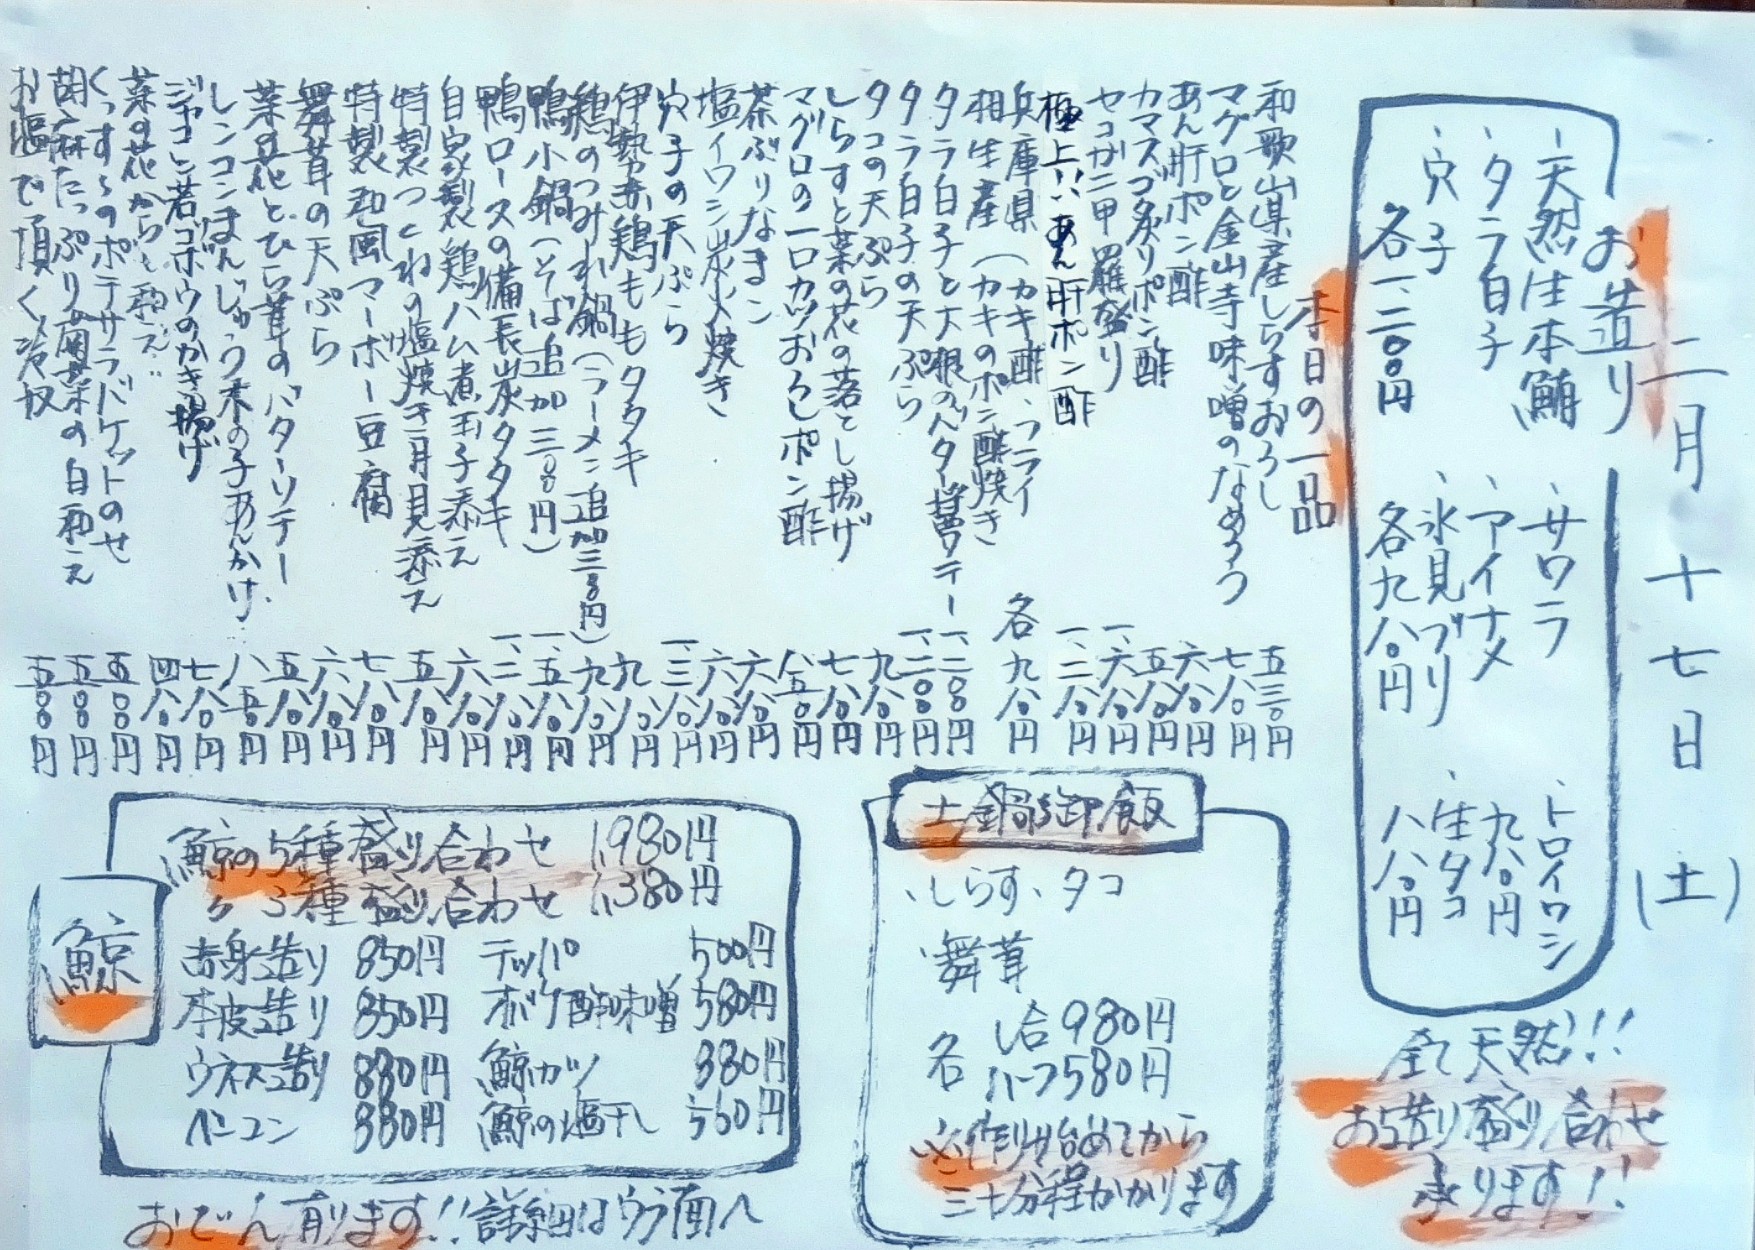 二月十七日(土)
お造り
、天然生本鮪
、タラ白子
、穴子
各一、二〇〇円
、サワラ
、アイナメ
、氷見ブリ
各九八〇円
、トロイワシ
九八〇円
、生タコ
八八〇円
全て天然!!
お造り盛り合わせ
承ります!!
本日の一品
和歌山県産しらすおろし 五三〇円
マグロと金山寺味噌のなめろう 七八〇円
あん肝ポン酢 六八〇円
カマス炙りポン酢 五八〇円
セコガニ甲羅盛り 一、六八〇円
極上!!あん肝ポン酢 一、二八〇円
兵庫県(カキ酢、フライ
相生産(カキのポン酢焼き 各九八〇円
タラ白子と大根のバター醤油ソテー 一、二〇〇円
タラ白子の天ぷら 一、二〇〇円
タコの天ぷら 九八〇円
しらすと菜の花の落とし揚げ 七八〇円
マグロの一口カツおろしポン酢 八五〇円
茶ぶりなまこ 六八〇円
塩イワシ炭火焼き 六八〇円
穴子の天ぷら 一、三八〇円
伊勢赤鶏ももタタキ 九八〇円
鶏のつみれ鍋(ラーメン追加三〇〇円) 九八〇円
鴨小鍋(そば追加三〇〇円) 一、五八〇円
鴨ロースの備長炭タタキ 一、二八〇円
自家製鶏ハム煮玉子添え 六八〇円
特製つくねの塩焼き月見添え 五八〇円
特製和風マーボー豆腐 七八〇円
舞茸の天ぷら 六八〇円
菜の花とひら茸のバターソテー 五八〇円
レンコンまんじゅう木の子あんかけ 八五〇円
ジャコと若ゴボウのかき揚げ 七八〇円
菜の花からし和え 四八〇円
くんすものポテサラバケットのせ 五五〇円
胡麻たっぷり菊菜の白和え 五五〇円
お塩で頂く冷奴 五〇〇円
土鍋御飯
、しらす、タコ
、舞茸
各 一合980円
ハーフ580円
※作り始めてから
三十分程かかります
鯨
鯨の5種盛り合わせ 1,980円
〃 3種盛り合わせ 1,380円
赤身造り 850円 テッパ 500円
本皮造り 850円 オバケ酢味噌 580円
ウネス造り 880円 鯨カツ 880円
ベーコン 880円 鯨の塩干し 560円
おでん有ります!!詳細はウラ面へ